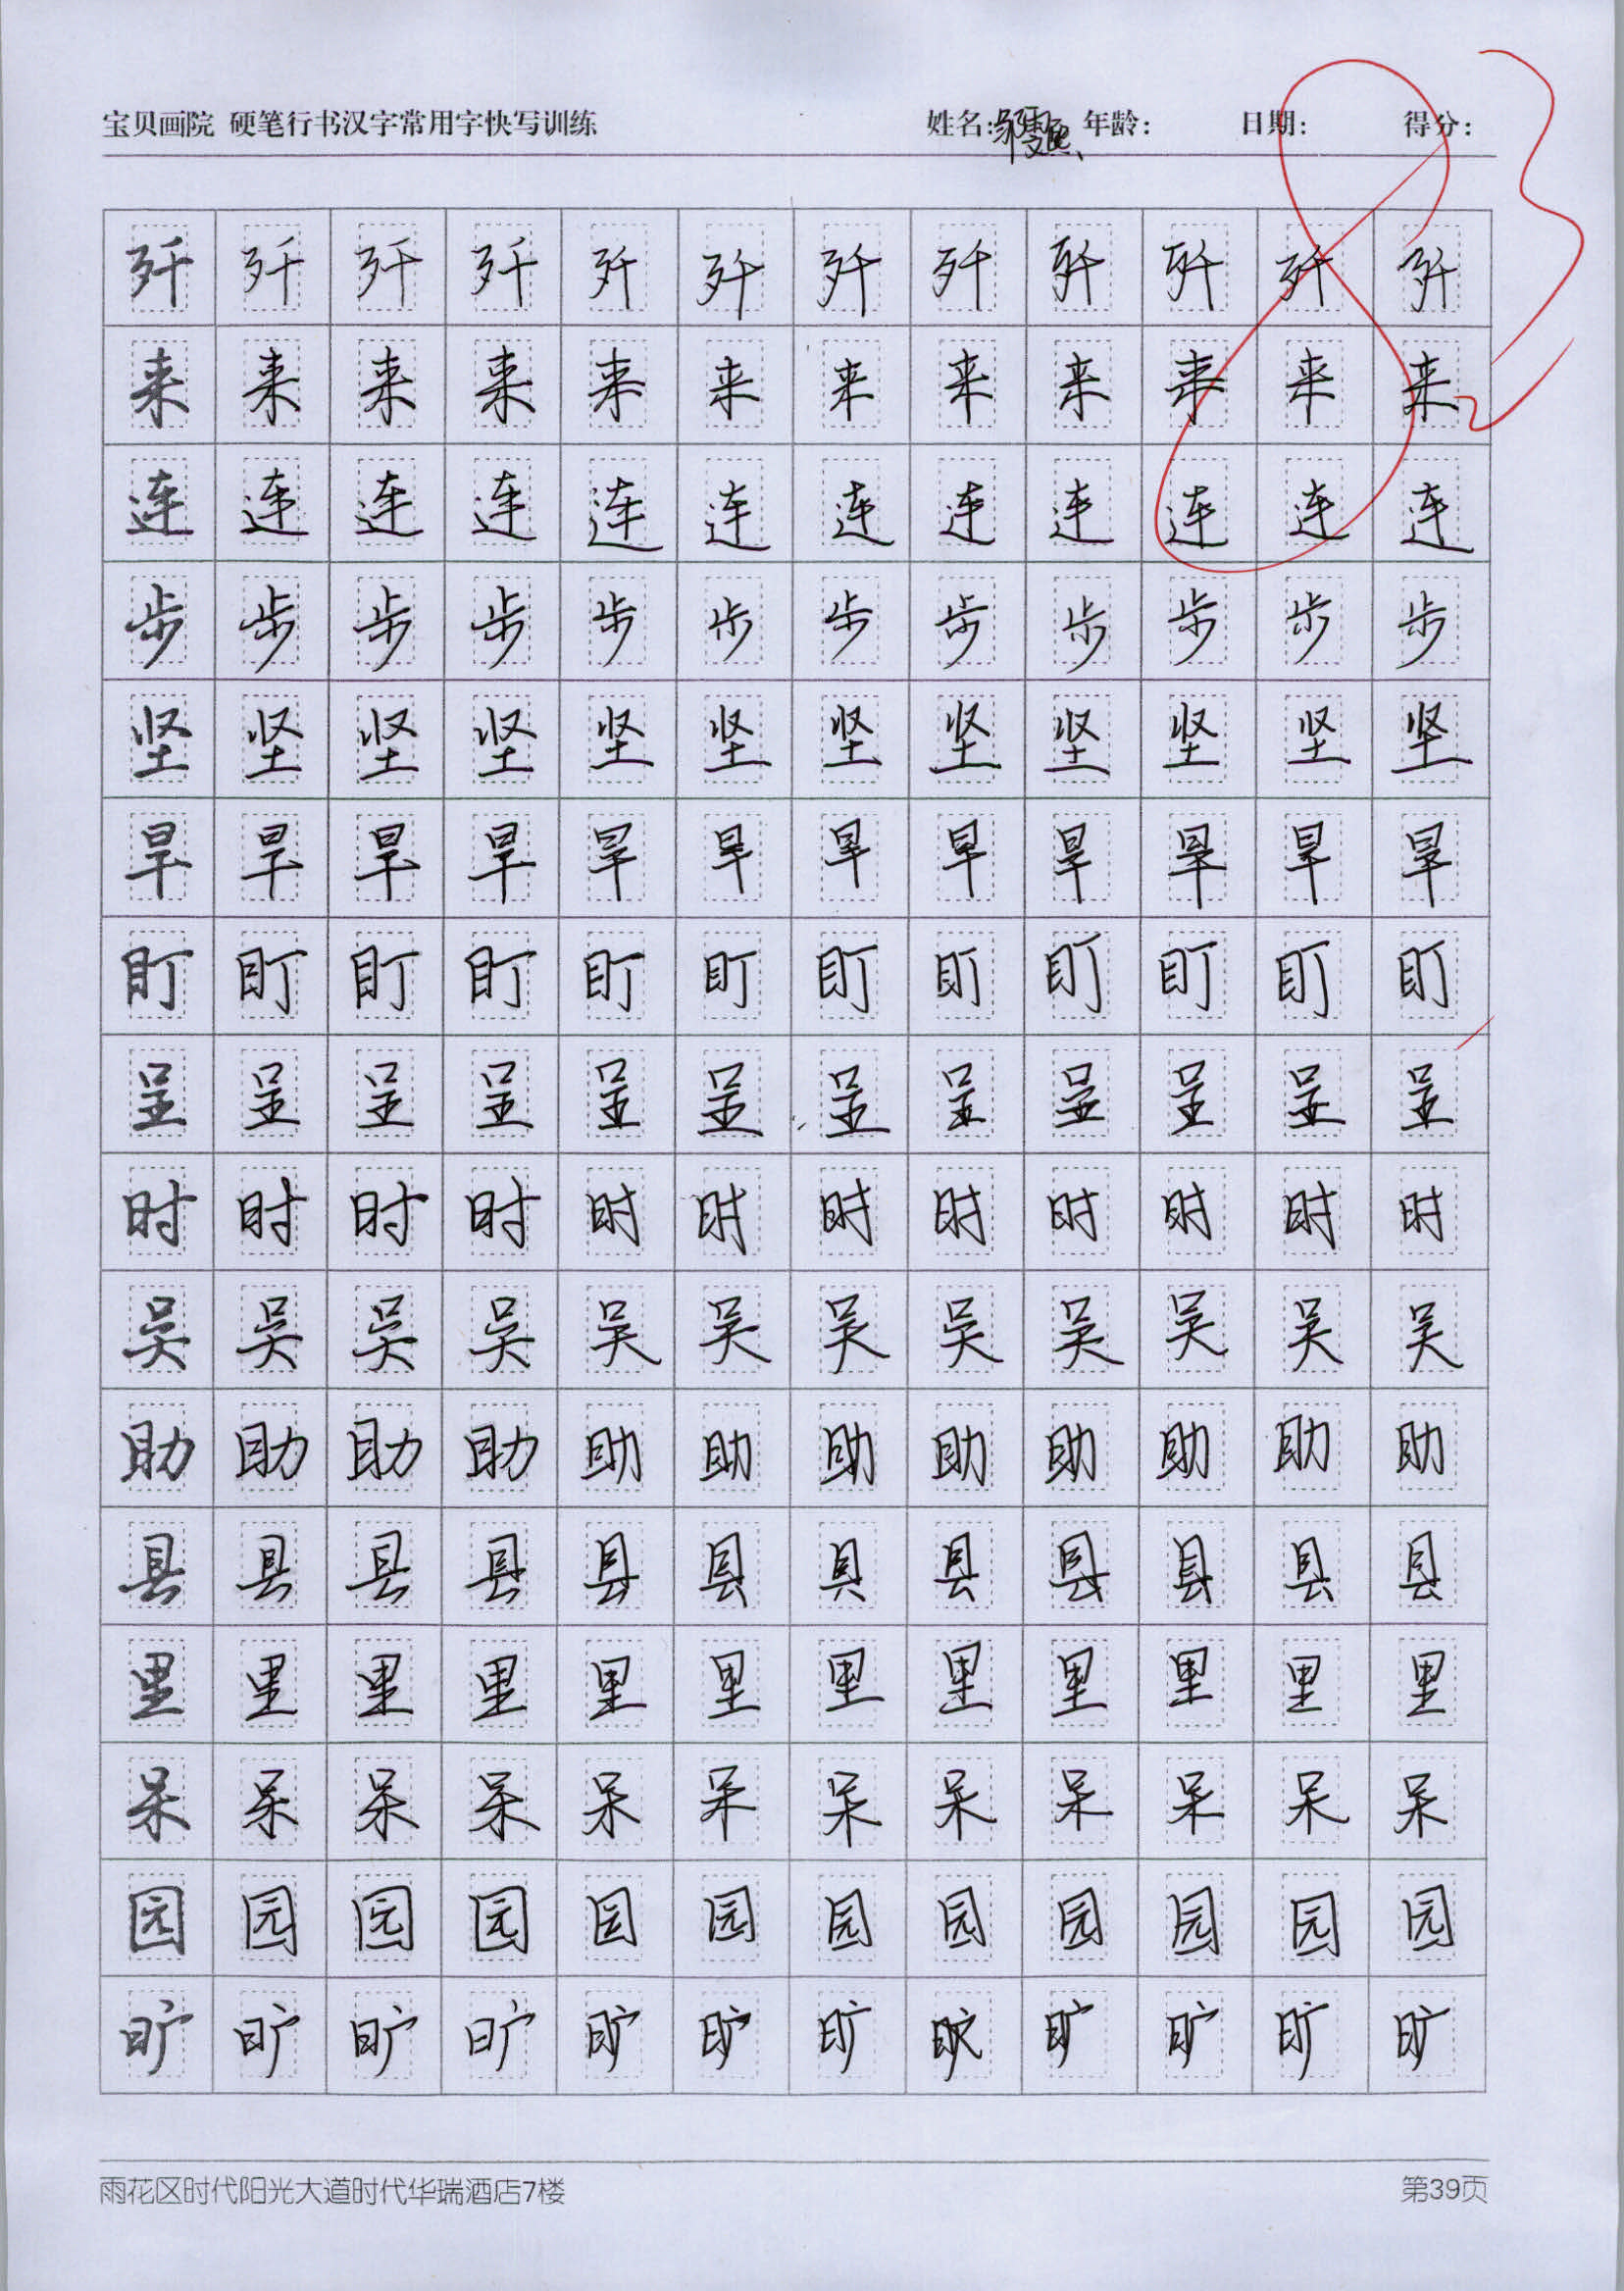 宝贝画院 硬笔行书汉字常用字快写训练 姓名: 年龄: 日期: 得分: 83
歼 歼 歼 歼 歼 歼 歼 歼 歼 歼 歼 歼
来 来 来 来 来 来 来 来 来 来 来 来
连 连 连 连 连 连 连 连 连 连 连 连
步 步 步 步 步 步 步 步 步 步 步 步
坚 坚 坚 坚 坚 坚 坚 坚 坚 坚 坚 坚
旱 旱 旱 旱 旱 旱 旱 旱 旱 旱 旱 旱
盯 盯 盯 盯 盯 盯 盯 盯 盯 盯 盯 盯
呈 呈 呈 呈 呈 呈 呈 呈 呈 呈 呈 呈
时 时 时 时 时 时 时 时 时 时 时 时
吴 吴 吴 吴 吴 吴 吴 吴 吴 吴 吴 吴
助 助 助 助 助 助 助 助 助 助 助 助
县 县 县 县 县 县 县 县 县 县 县 县
里 里 里 里 里 里 里 里 里 里 里 里
呆 呆 呆 呆 呆 呆 呆 呆 呆 呆 呆 呆
园 园 园 园 园 园 园 园 园 园 园 园
旷 旷 旷 旷 旷 旷 旷 旷 旷 旷 旷 旷
雨花区时代阳光大道时代华瑞酒店7楼 第39页